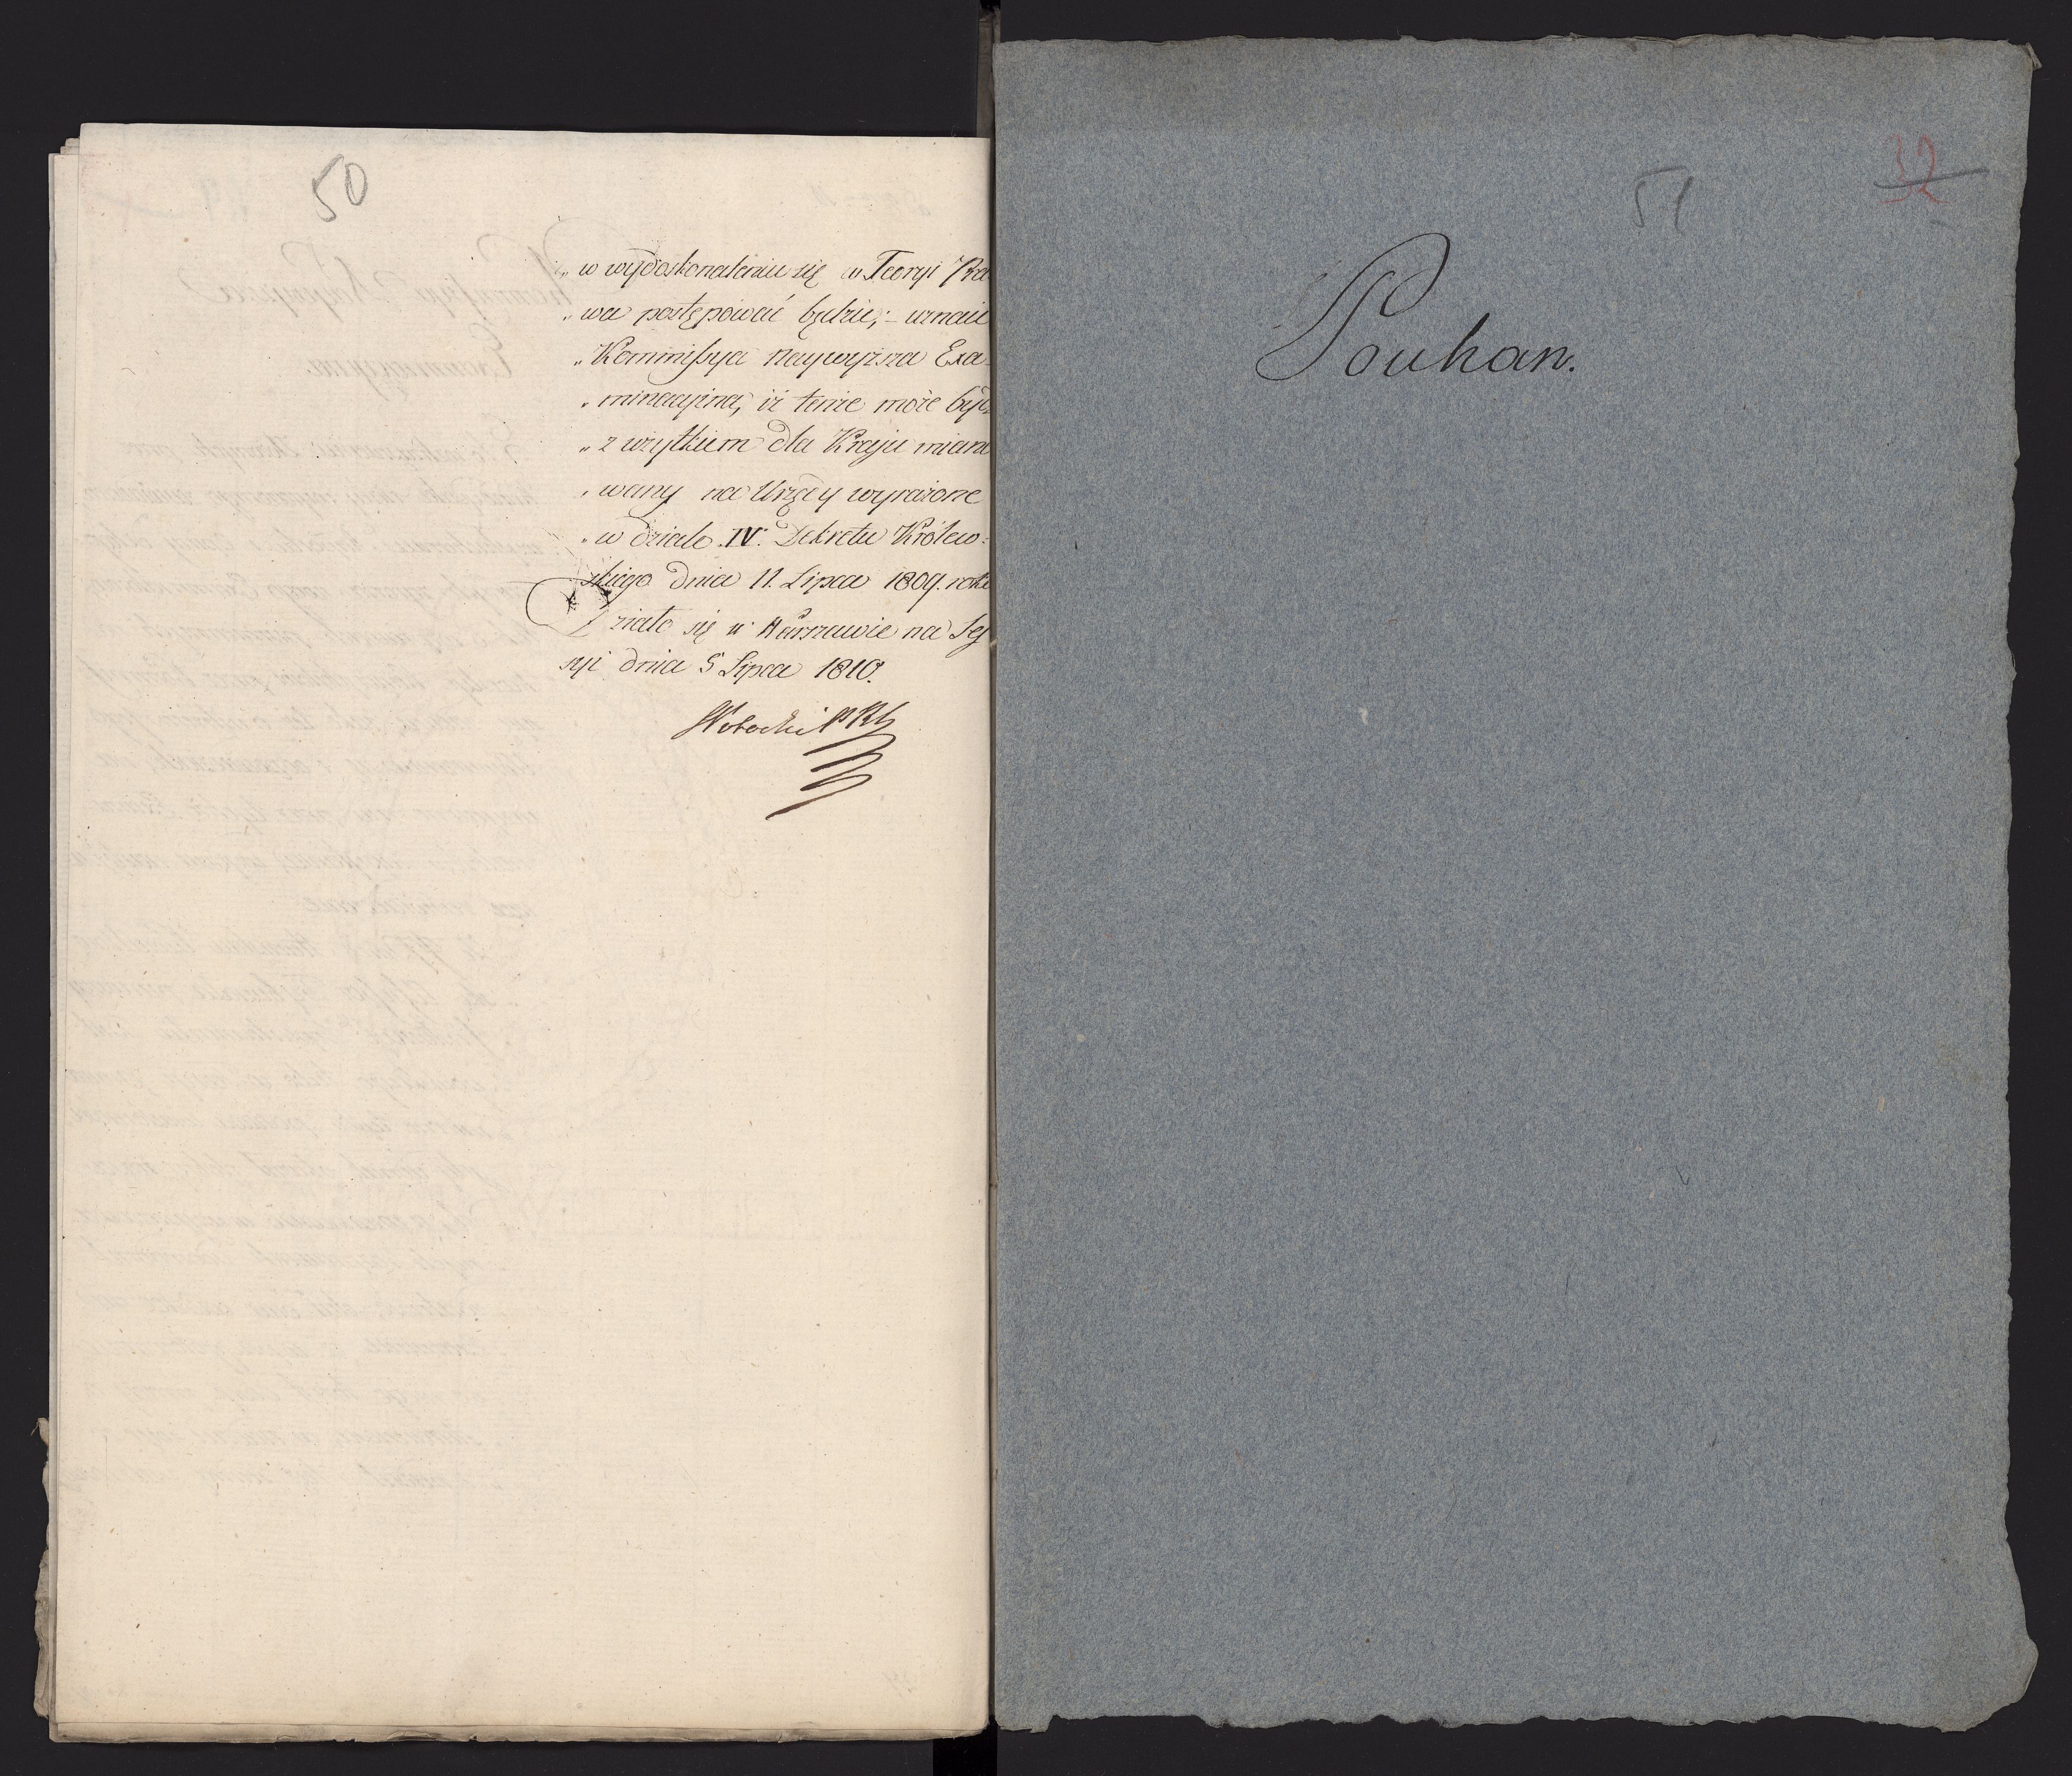 50
„ w wydoskonaleniu się w Teoryi Pra
„ wa postępować będzie; – uznaie
„ Kommissya Naywyższa Exa
„ minacyina, iż tenże może bydź
„ z użytkiem dla Kraju miano
„ wany na Urzędy wyrażone
„ w dziale IV. Dekretu Królew:
skiego dnia 11. Lipca 1809. roku
Działo się w Warszawie na Ses
syi dnia 5 Lipca 1810.
51
32
Pouhan.